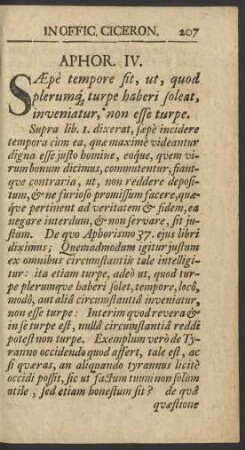 IN OFFIC. CICERON. 207
APHOR. IV.
SÆpè tempore fit, ut, quod
plerumq́ turpe haberi soleat,
inveniatur, non esse turpe.
Supra lib. 1. dixerat, sæpè incidere
tempora cùm ea, quæ maximè videantur
digna esse justo homine, eoque, quem vi-
rum bonum dicimus, commutentur, fiant-
que contraria, ut, non reddere deposi-
tum, & ne furioso promissum facere, quæ-
que pertinent ad veritatem & fidem, ea
negare interdum, & non servare, sit ju-
stum. De quo Aphorismo 37. ejus libri
diximus; Quemadmodum igitur justum
ex omnibus circumstantiis tale intelligi-
tur: ita etiam turpe, adeò ut, quod tur-
pe plerumque haberi solet, tempore, locô,
modô, aut aliâ circumstantiâ inveniatur,
non esse turpe: Interim quod revera &
in se turpe est, nullâ circumstantiâ reddi
potest non turpe. Exemplum verò de Ty-
ranno occidendo quod affert, tale est, ac
si quæras, an aliquando tyrannus licitè
occidi possit, sic ut factum tuum non solùm
utile, sed etiam honestum sit? de quâ
quæstione